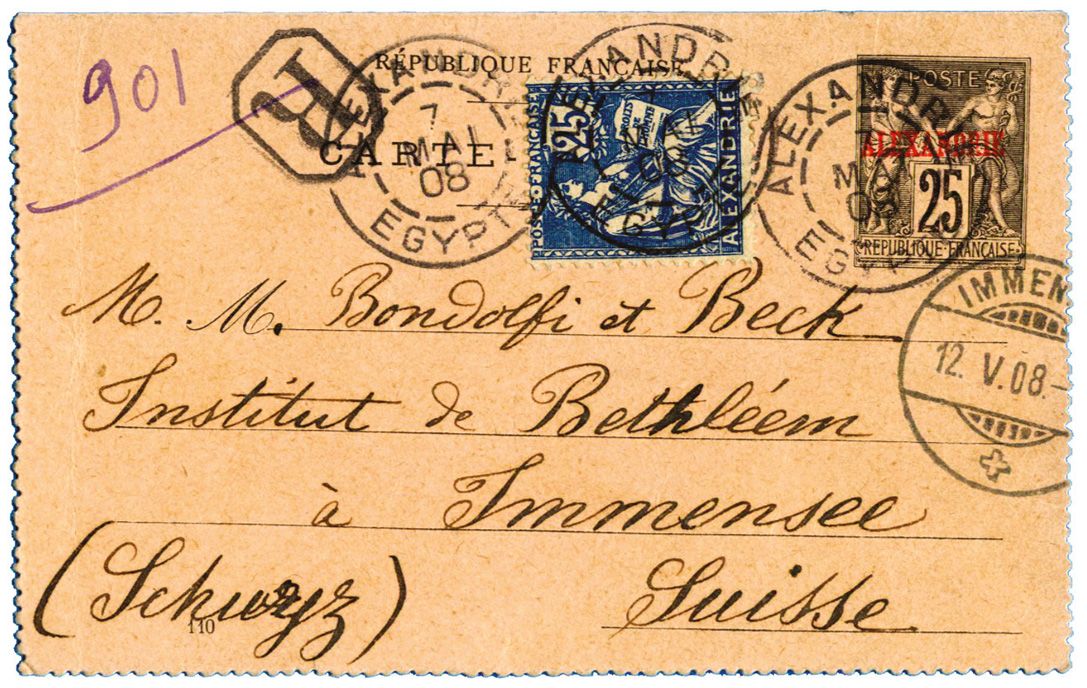 901
R
RÉPUBLIQUE FRANÇAISE
CARTE-
ALEXANDRIE
7
MAI
08
EGYPTE
POSTE FRANÇAISE
25
DROITS DE L'HOMME
ALEXANDRIE
ALEXANDRIE
MAI
08
EGYPTE
ALEXANDRIE
7
MAI
08
EGYPTE
POSTE
ALEXANDRIE
25
RÉPUBLIQUE FRANÇAISE
IMMEN
12. V. 08.-
M. M. Bondolfi et Beck
Institut de Bethléem
à Immensee
(Schwyz) Suisse
110